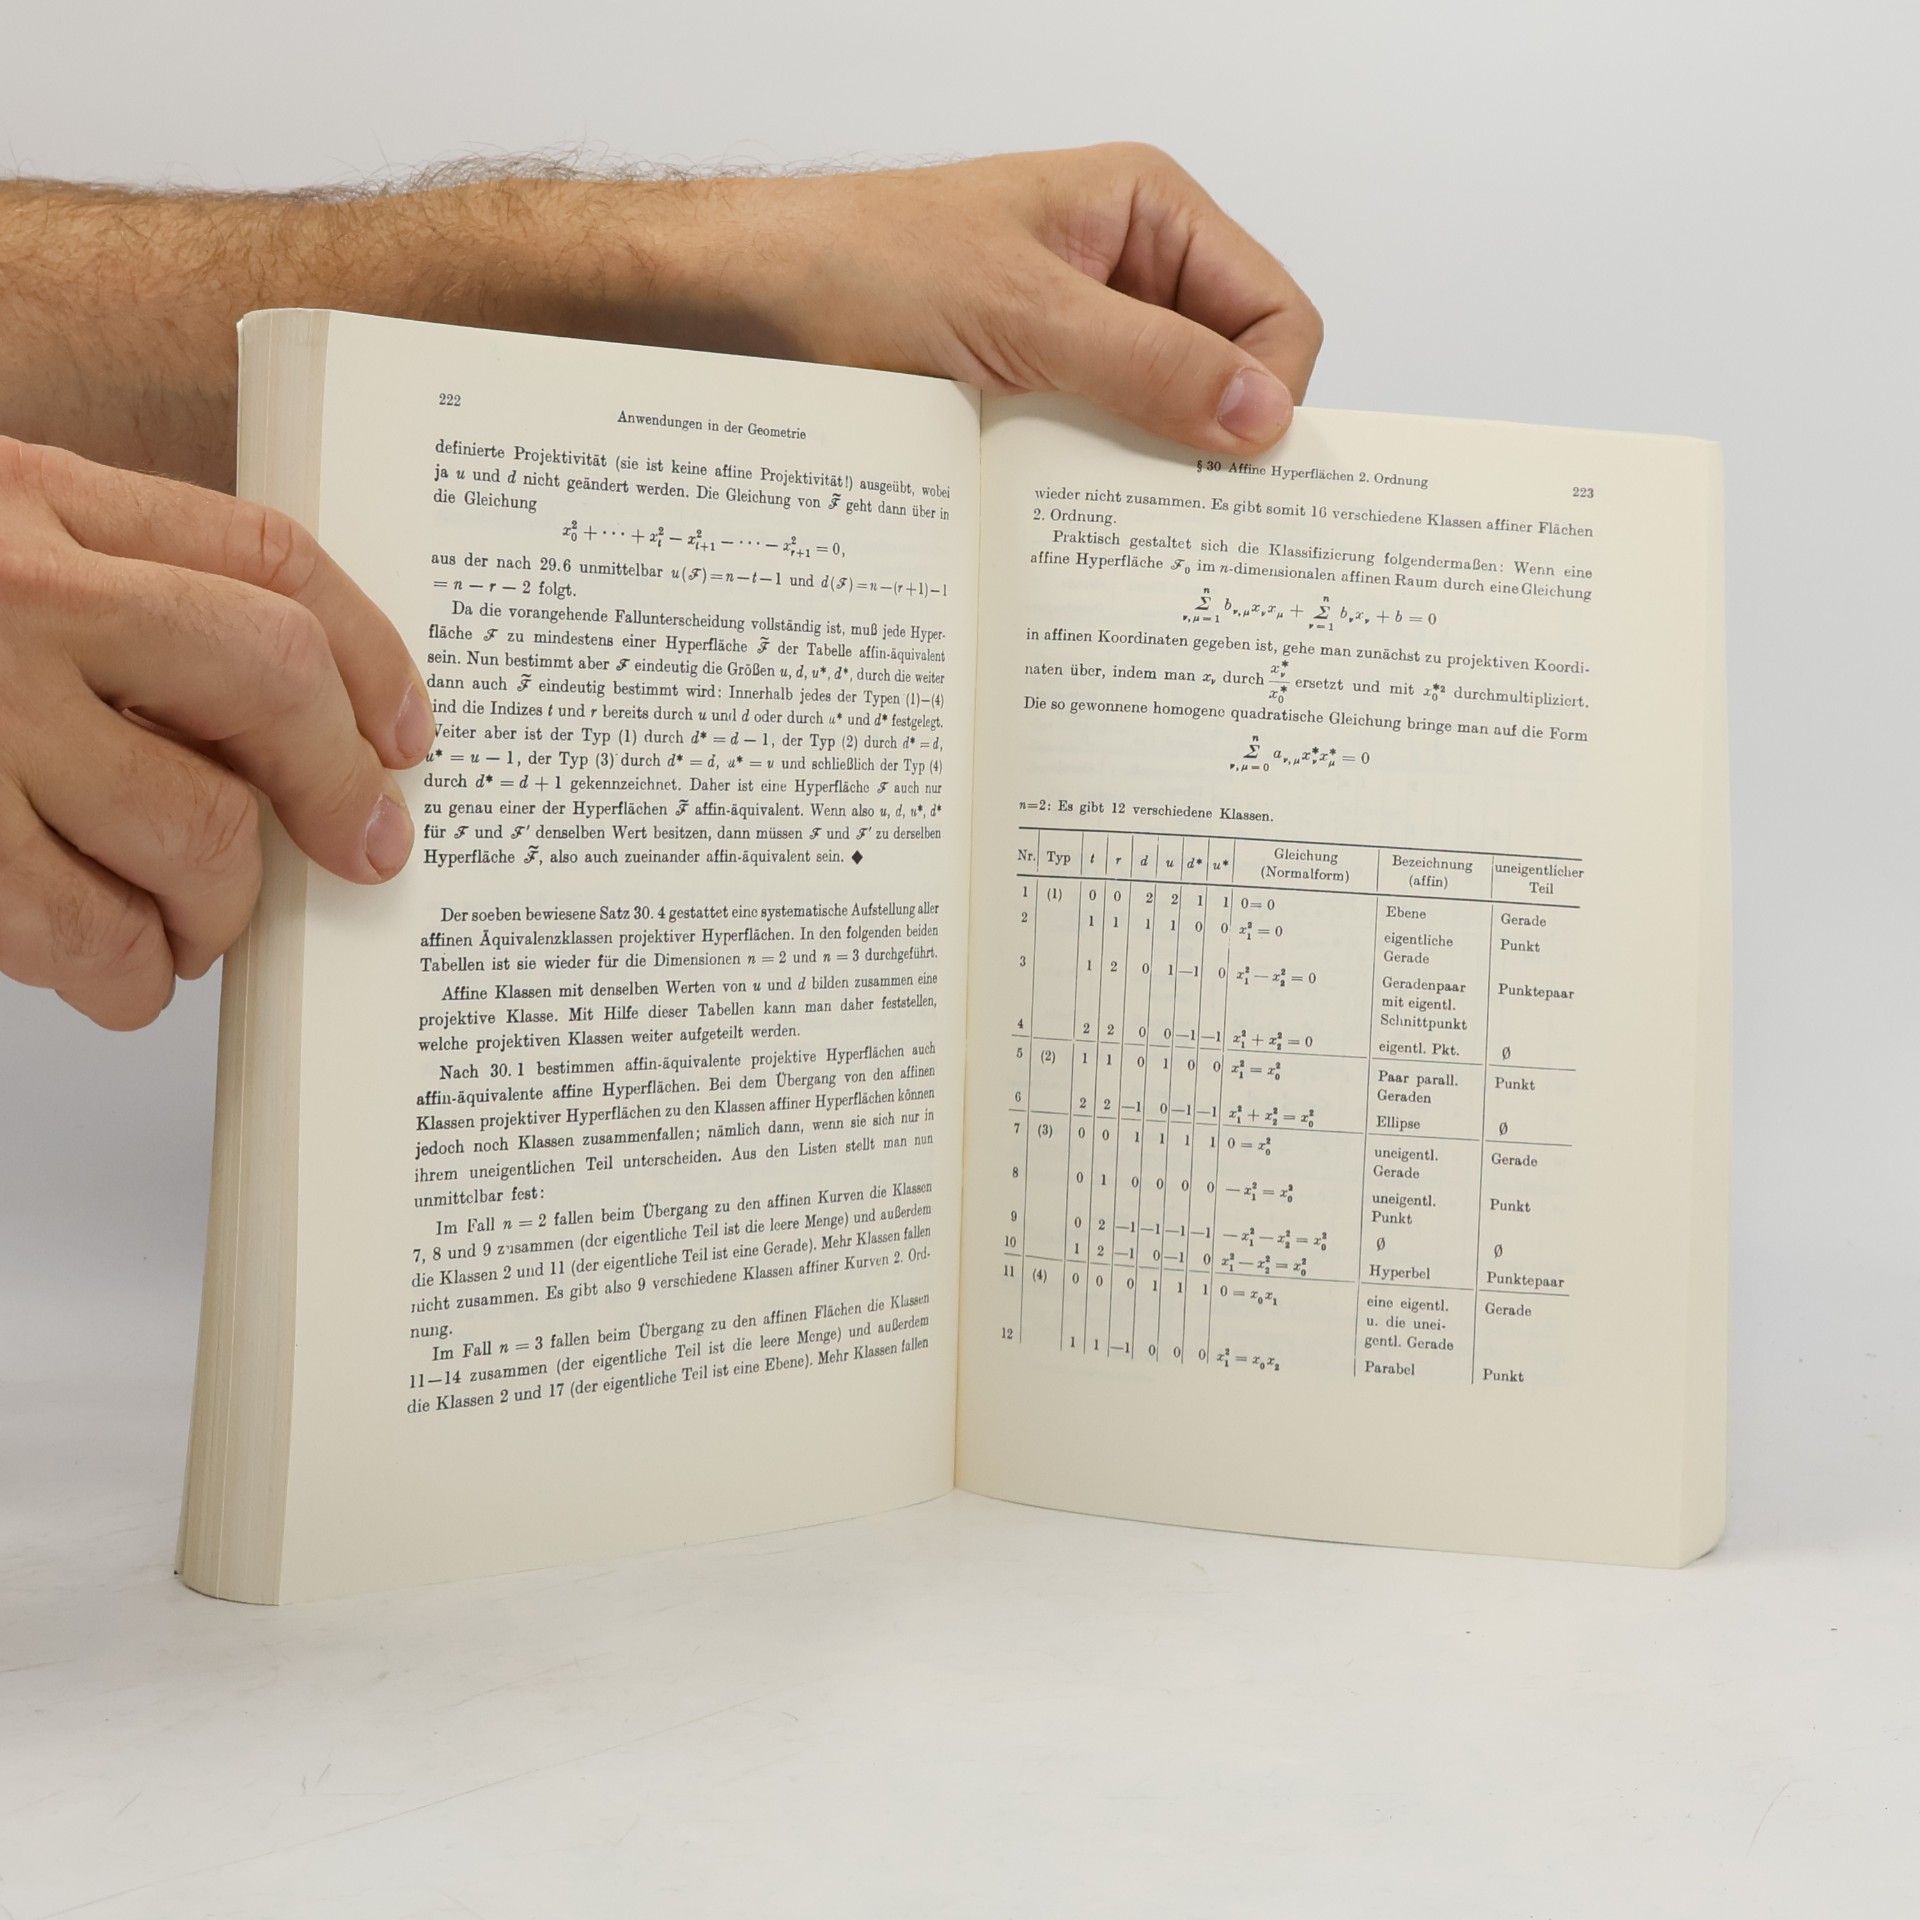 222
Anwendungen in der Geometrie
definierte Projektivität (sie ist keine affine Projektivität!) ausgeübt, wobei
ja u und d nicht geändert werden. Die Gleichung von ℱ̃ geht dann über in
die Gleichung
x₀² + ⋯ + xₜ² − xₜ₊₁² − ⋯ − xᵣ₊₁² = 0,
aus der nach 29.6 unmittelbar u(ℱ)=n−t−1 und d(ℱ)=n−(r+1)−1
= n − r − 2 folgt.
Da die vorangehende Fallunterscheidung vollständig ist, muß jede Hyper-
fläche ℱ zu mindestens einer Hyperfläche ℱ̃ der Tabelle affin-äquivalent
sein. Nun bestimmt aber ℱ eindeutig die Größen u, d, u*, d*, durch die weiter
dann auch ℱ̃ eindeutig bestimmt wird: Innerhalb jedes der Typen (1)–(4)
ind die Indizes t und r bereits durch u und d oder durch u* und d* festgelegt.
Weiter aber ist der Typ (1) durch d* = d − 1, der Typ (2) durch d* = d,
u* = u − 1, der Typ (3) durch d* = d, u* = u und schließlich der Typ (4)
durch d* = d + 1 gekennzeichnet. Daher ist eine Hyperfläche ℱ auch nur
zu genau einer der Hyperflächen ℱ̃ affin-äquivalent. Wenn also u, d, u*, d*
für ℱ und ℱ′ denselben Wert besitzen, dann müssen ℱ und ℱ′ zu derselben
Hyperfläche ℱ̃, also auch zueinander affin-äquivalent sein. ◆
Der soeben bewiesene Satz 30. 4 gestattet eine systematische Aufstellung aller
affinen Äquivalenzklassen projektiver Hyperflächen. In den folgenden beiden
Tabellen ist sie wieder für die Dimensionen n = 2 und n = 3 durchgeführt.
Affine Klassen mit denselben Werten von u und d bilden zusammen eine
projektive Klasse. Mit Hilfe dieser Tabellen kann man daher feststellen,
welche projektiven Klassen weiter aufgeteilt werden.
Nach 30. 1 bestimmen affin-äquivalente projektive Hyperflächen auch
affin-äquivalente affine Hyperflächen. Bei dem Übergang von den affinen
Klassen projektiver Hyperflächen zu den Klassen affiner Hyperflächen können
jedoch noch Klassen zusammenfallen; nämlich dann, wenn sie sich nur in
ihrem uneigentlichen Teil unterscheiden. Aus den Listen stellt man nun
unmittelbar fest:
Im Fall n = 2 fallen beim Übergang zu den affinen Kurven die Klassen
7, 8 und 9 zusammen (der eigentliche Teil ist die leere Menge) und außerdem
die Klassen 2 und 11 (der eigentliche Teil ist eine Gerade). Mehr Klassen fallen
nicht zusammen. Es gibt also 9 verschiedene Klassen affiner Kurven 2. Ord-
nung.
Im Fall n = 3 fallen beim Übergang zu den affinen Flächen die Klassen
11—14 zusammen (der eigentliche Teil ist die leere Menge) und außerdem
die Klassen 2 und 17 (der eigentliche Teil ist eine Ebene). Mehr Klassen fallen
§ 30 Affine Hyperflächen 2. Ordnung
223
wieder nicht zusammen. Es gibt somit 16 verschiedene Klassen affiner Flächen
2. Ordnung.
Praktisch gestaltet sich die Klassifizierung folgendermaßen: Wenn eine
affine Hyperfläche ℱ₀ im n-dimensionalen affinen Raum durch eine Gleichung
∑ⁿ_{ν,μ=1} b_{ν,μ}x_νx_μ + ∑ⁿ_{ν=1} b_νx_ν + b = 0
in affinen Koordinaten gegeben ist, gehe man zunächst zu projektiven Koordi-
naten über, indem man x_ν durch x_ν*/x₀* ersetzt und mit x₀*² durchmultipliziert.
Die so gewonnene homogene quadratische Gleichung bringe man auf die Form
∑ⁿ_{ν,μ=0} a_{ν,μ}x_ν*x_μ* = 0
n=2: Es gibt 12 verschiedene Klassen.
Nr. Typ t r d u d* u* Gleichung (Normalform) Bezeichnung (affin) uneigentlicher Teil
1 (1) 0 0 2 2 1 1 0=0 Ebene Gerade
2 1 1 1 1 0 0 x₁² = 0 eigentliche Gerade Punkt
3 1 2 0 1 −1 0 x₁² − x₂² = 0 Geradenpaar mit eigentl. Schnittpunkt Punktepaar
4 2 2 0 0 −1 −1 x₁² + x₂² = 0 eigentl. Pkt. Ø
5 (2) 1 1 0 1 0 0 x₁² = x₀² Paar parall. Geraden Punkt
6 2 2 −1 0 −1 −1 x₁² + x₂² = x₀² Ellipse Ø
7 (3) 0 0 1 1 1 1 0 = x₀² uneigentl. Gerade Gerade
8 0 1 0 0 0 0 − x₁² = x₀² uneigentl. Punkt Punkt
9 0 2 −1 −1 −1 −1 − x₁² − x₂² = x₀² Ø Ø
10 1 2 −1 0 −1 0 x₁² − x₂² = x₀² Hyperbel Punktepaar
11 (4) 0 0 0 1 1 1 0 = x₀x₁ eine eigentl. u. die unei- gentl. Gerade Gerade
12 1 1 −1 0 0 0 x₁² = x₀x₂ Parabel Punkt